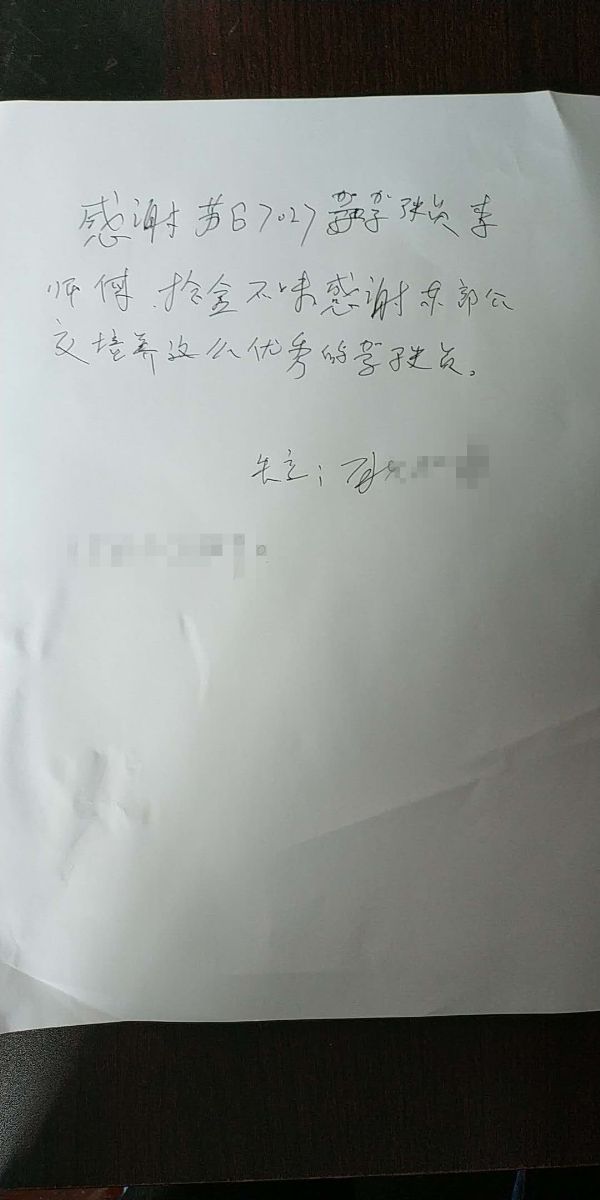 感谢苏B7027驾驶员李
师傅.拾金不昧感谢东部公
交培养这么优秀的驾驶员。
失主: